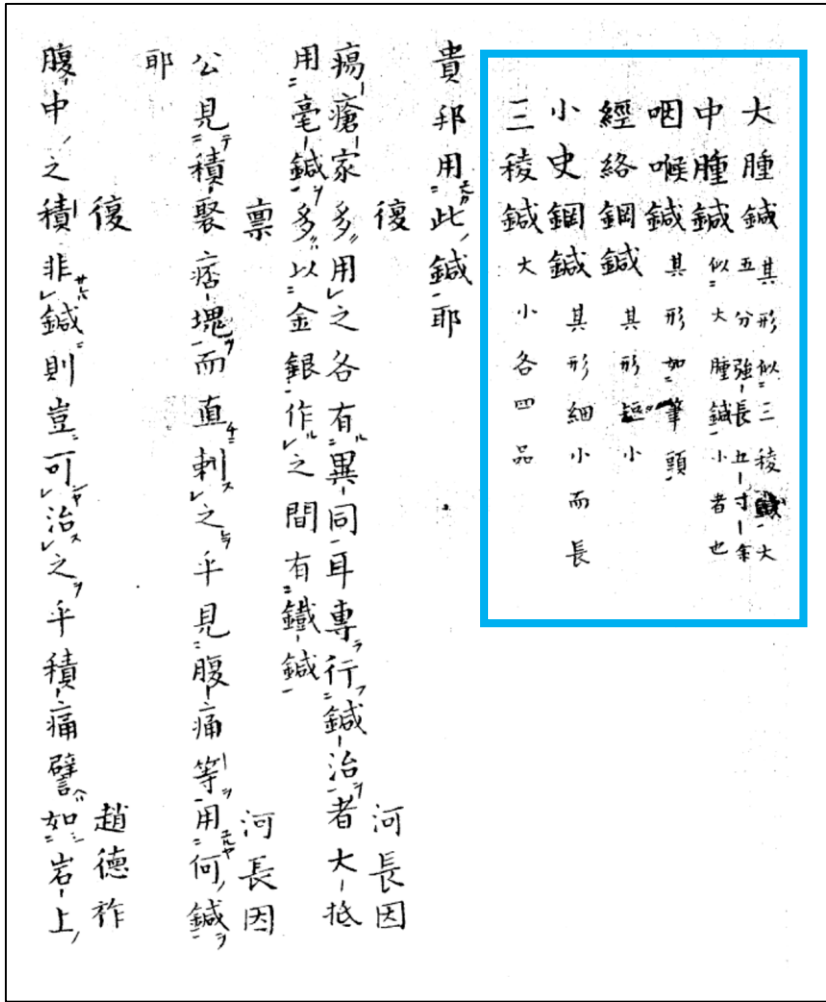 大腫鍼 其形似三稜鍼大
五分強長五寸余
中腫鍼 似大腫鍼小者也
咽喉鍼 其形如筆頭
經絡鋼鍼 其形短小
小史鋼鍼 其形細小而長
三稜鍼 大小各四品
貴邦用此鍼耶
復 河長因
瘍瘡家多用之各有異同耳專行鍼治者大抵
用毫鍼多以金銀作之間有鐵鍼
稟 河長因
公見積聚痞塊而直刺之乎見腹痛等用何鍼
耶
復 趙德祚
腹中之積非鍼則豈可治之乎積痛譬如岩上